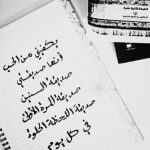 يكفيني من الحب
أنها صديقتي
صديقة السنين
صديقة المرة الأولى
صديقة اللحظة الحلوة
في كل يوم